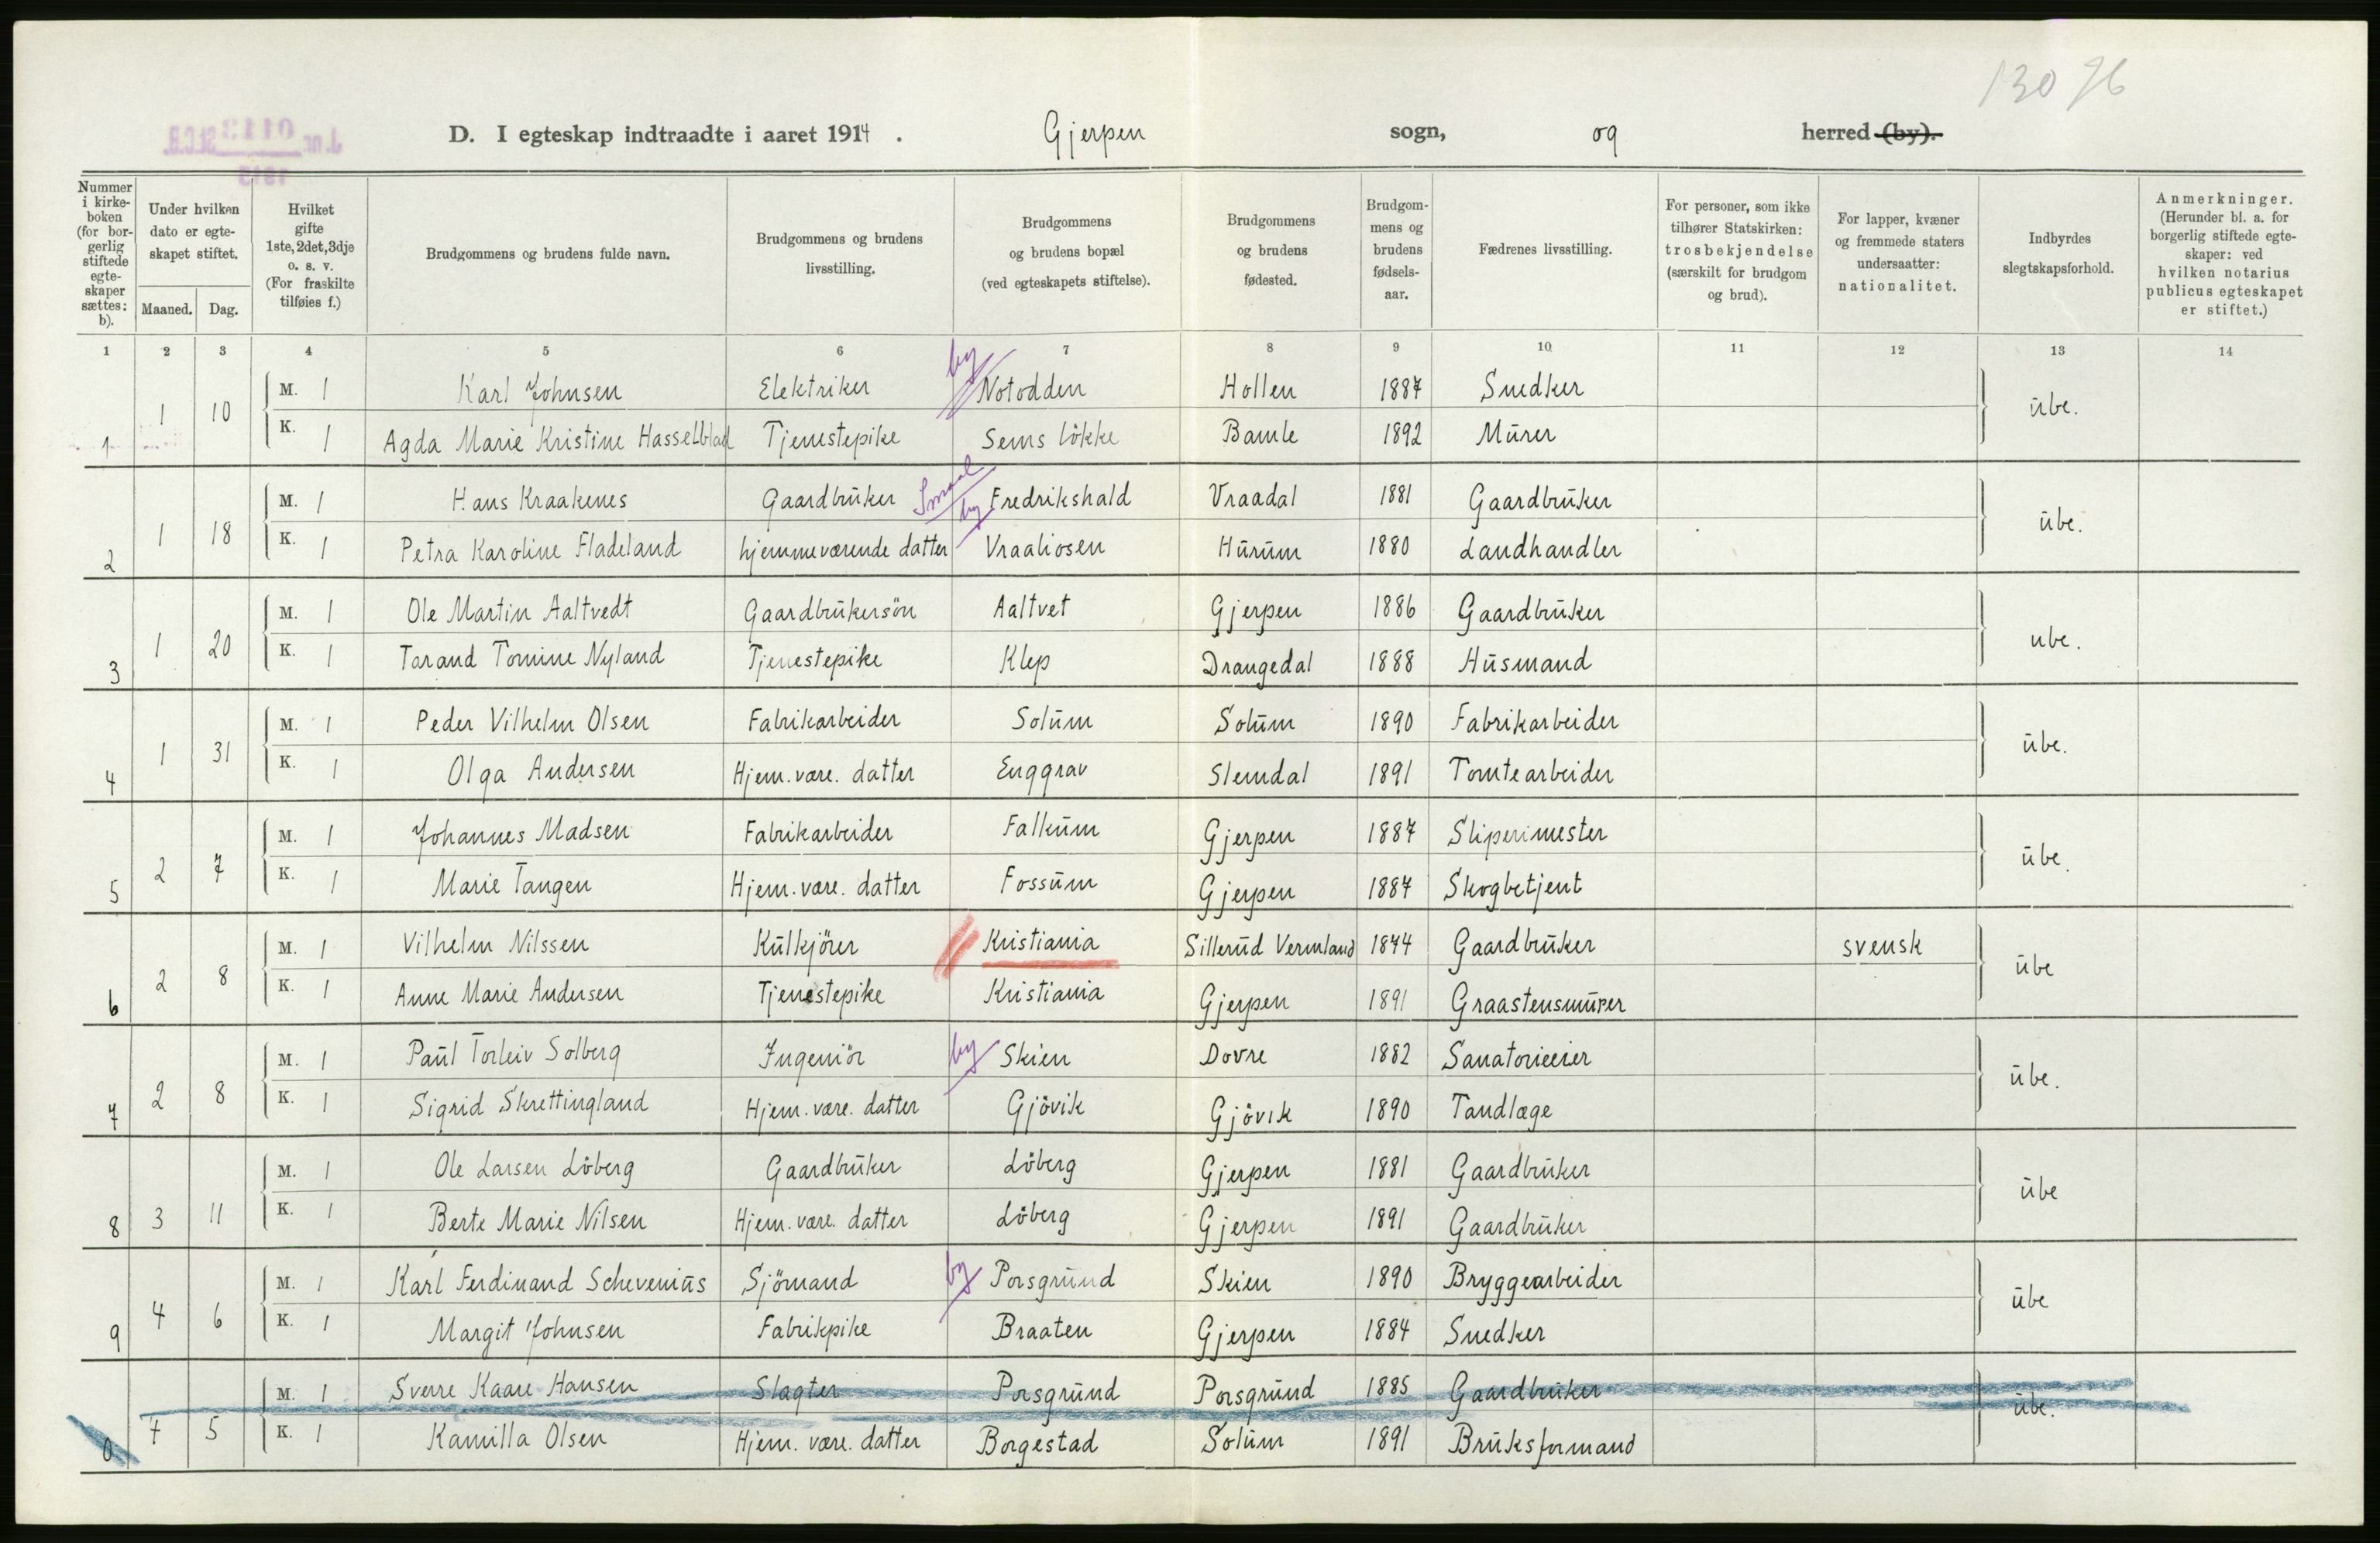 130 76
J. nr. 0113 St.C.B.
1913
D. I egteskap indtraadte i aaret 1914. Gjerpen sogn, og herred (by).
Nummer i kirkeboken (for borgerlig stiftede egteskaper sættes: b).
Under hvilken dato er egteskapet stiftet.
Maaned. Dag.
Hvilket gifte 1ste, 2det, 3dje o. s. v. (For fraskilte tilføies f.)
Brudgommens og brudens fulde navn.
Brudgommens og brudens livsstilling.
Brudgommens og brudens bopæl (ved egteskapets stiftelse).
Brudgommens og brudens fødested.
Brudgommens og brudens fødselsaar.
Fædrenes livsstilling.
For personer, som ikke tilhører Statskirken: trosbekjendelse (særskilt for brudgom og brud).
For lapper, kvæner og fremmede staters undersaatter: nationalitet.
Indbyrdes slegtskapsforhold.
Anmerkninger. (Herunder bl. a. for borgerlig stiftede egteskaper: ved hvilken notarius publicus egteskapet er stiftet.)
1 2 3 4 5 6 7 8 9 10 11 12 13 14
1 1 10 M. 1 Karl Johnsen Elektriker by Notodden Hollen 1887 Snedker übe.
K. 1 Agda Marie Kristine Hasselblad Tjenestepike Sems lökke Bamle 1892 Mürer
2 1 18 M. 1 Hans Kraakenes Gaardbrüker Smaal by Fredrikshald Vraadal 1881 Gaardbrüker übe.
K. 1 Petra Karoline Fladeland hjemmeværende datter Vraaliosen Hürüm 1880 Landhandler
3 1 20 M. 1 Ole Martin Aaltvedt Gaardbrükersön Aaltvet Gjerpen 1886 Gaardbrüker ube.
K. 1 Tarand Tomine Nyland Tjenestepike Klep Drangedal 1888 Hüsmand
4 1 31 M. 1 Peder Vilhelm Olsen Fabrikarbeider Solüm Solüm 1890 Fabrikarbeider übe.
K. 1 Olga Andersen Hjem. være. datter Enggrav Slemdal 1891 Tomtearbeider
5 2 7 M. 1 Johannes Madsen Fabrikarbeider Falküm Gjerpen 1887 Sliperimester übe.
K. 1 Marie Tangen Hjem. være. datter Fossüm Gjerpen 1887 Skogbetjent
6 2 8 M. 1 Vilhelm Nilssen Külkjörer Kristiania Sillerüd Vermland 1874 Gaardbrüker svensk übe
K. 1 Anne Marie Andersen Tjenestepike Kristiania Gjerpen 1891 Graastensmürer
7 2 8 M. 1 Paül Torleiv Solberg Ingeniör by Skien Dovre 1882 Sanatorieeier übe.
K. 1 Sigrid Skrettingland Hjem. være. datter Gjövik Gjövik 1890 Tandlæge
8 3 11 M. 1 Ole Larsen Löberg Gaardbrüker Löberg Gjerpen 1881 Gaardbrüker übe
K. 1 Berte Marie Nilsen Hjem. være. datter Löberg Gjerpen 1891 Gaardbrüker
9 4 6 M. 1 Karl Ferdinand Scheveniüs Sjömand by Porsgründ Skien 1890 Bryggearbeider übe
K. 1 Margit Johnsen Fabrikpike Braaten Gjerpen 1884 Snedker
0 7 5 M. 1 Sverre Kaare Hansen Slagter Porsgründ Porsgründ 1885 Gaardbrüker übe.
K. 1 Kamilla Olsen Hjem. være. datter Borgestad Solüm 1891 Brüksformand